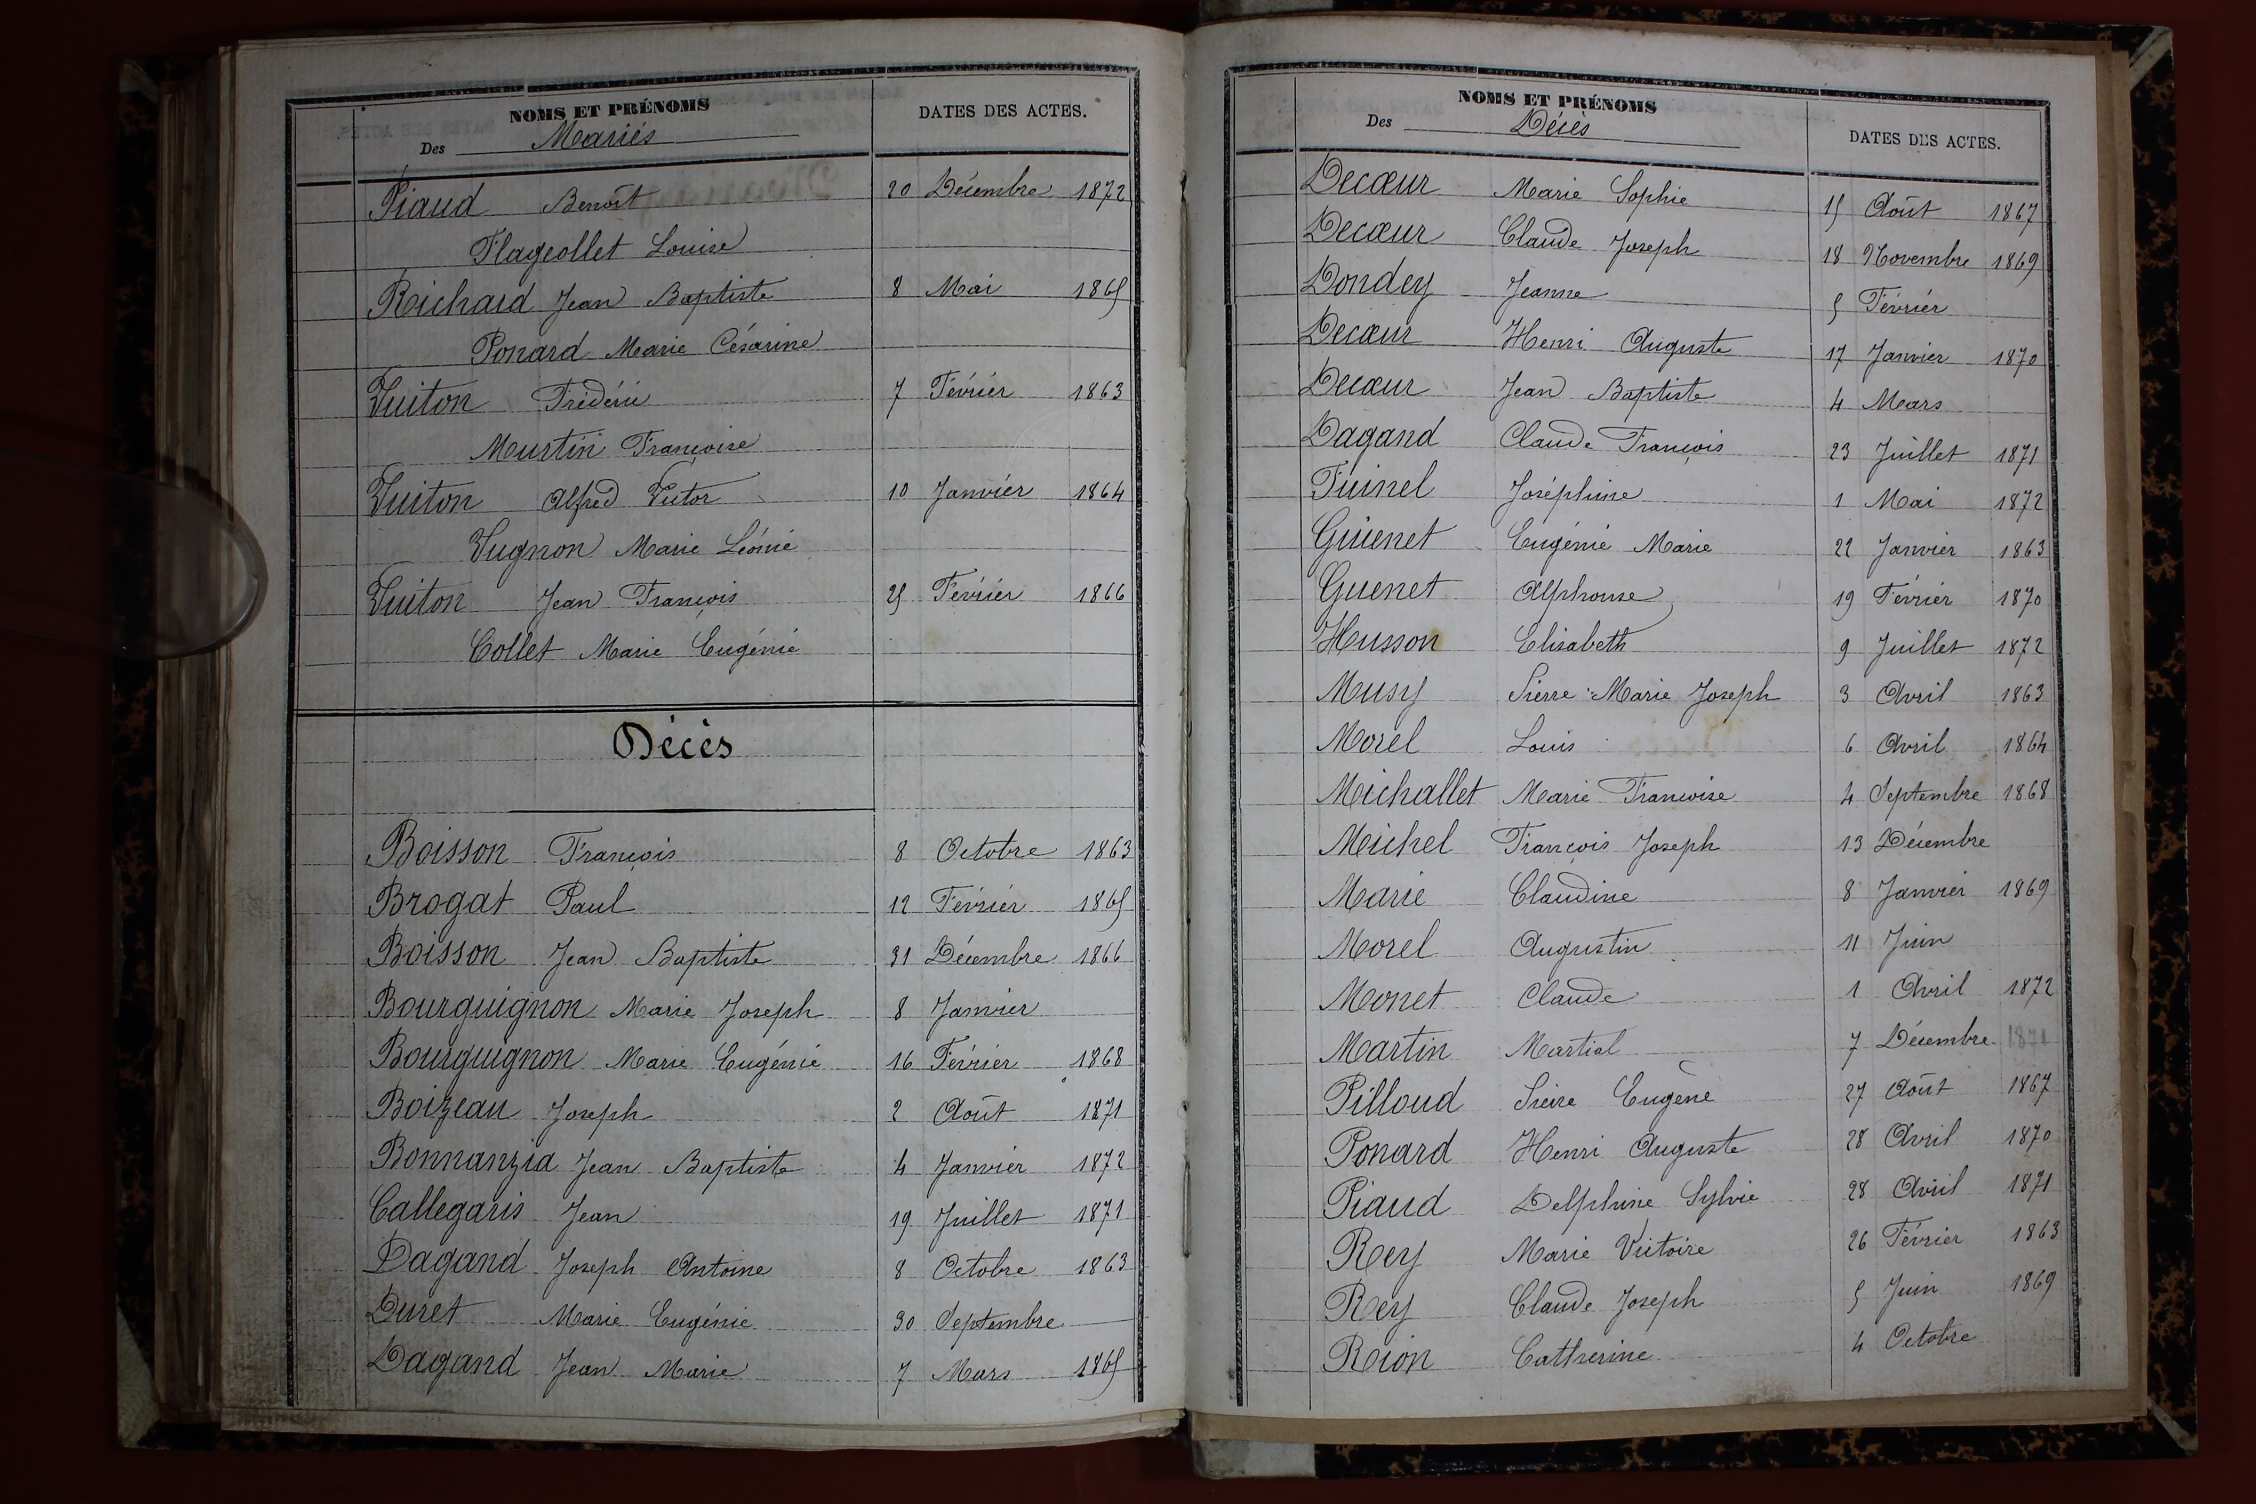 NOMS ET PRÉNOMS
Des Mariés
DATES DES ACTES.
Piaud Benoît 20 Décembre 1872
Flageollet Louise
Richard Jean Baptiste 8 Mai 1865
Ponard Marie Césarine
Vuiton Frédéric 7 Février 1863
Murtin Françoise
Vuiton Alfred Victor 10 Janvier 1864
Vugnon Marie Léonie
Vuiton Jean François 25 Février 1866
Collet Marie Eugénie
Décès
Boisson François 8 Octobre 1863
Brogat Paul 12 Février 1865
Boisson Jean Baptiste 31 Décembre 1866
Bourguignon Marie Joseph 8 Janvier
Bourguignon Marie Eugénie 16 Février 1868
Boizeau Joseph 2 Août 1871
Bonnanzia Jean Baptiste 4 Janvier 1872
Callegaris Jean 19 Juillet 1871
Dagand Joseph Antoine 8 Octobre 1863
Duret Marie Eugénie 30 Septembre
Dagand Jean Marie 7 Mars 1865
NOMS ET PRÉNOMS
Des Décès
DATES DES ACTES.
Decœur Marie Sophie 15 Août 1867
Decœur Claude Joseph 18 Novembre 1869
Dondey Jeanne 5 Février
Decœur Henri Auguste 17 Janvier 1870
Decœur Jean Baptiste 4 Mars
Dagand Claude François 23 Juillet 1871
Fuinel Joséphine 1 Mai 1872
Guienet Eugénie Marie 22 Janvier 1863
Guenet Alphonse 19 Février 1870
Husson Elisabeth 9 Juillet 1872
Musy Pierre Marie Joseph 3 Avril 1863
Morel Louis 6 Avril 1864
Michallet Marie Françoise 4 Septembre 1868
Michel François Joseph 13 Décembre
Marie Claudine 8 Janvier 1869
Morel Augustin 11 Juin
Monet Claude 1 Avril 1872
Martin Martial 7 Décembre 1871
Pilloud Pierre Eugène 27 Août 1867
Ponard Henri Auguste 28 Avril 1870
Piaud Delphine Sylvie 28 Avril 1871
Rey Marie Victoire 26 Février 1863
Rey Claude Joseph 5 Juin 1869
Roion Catherine 4 Octobre